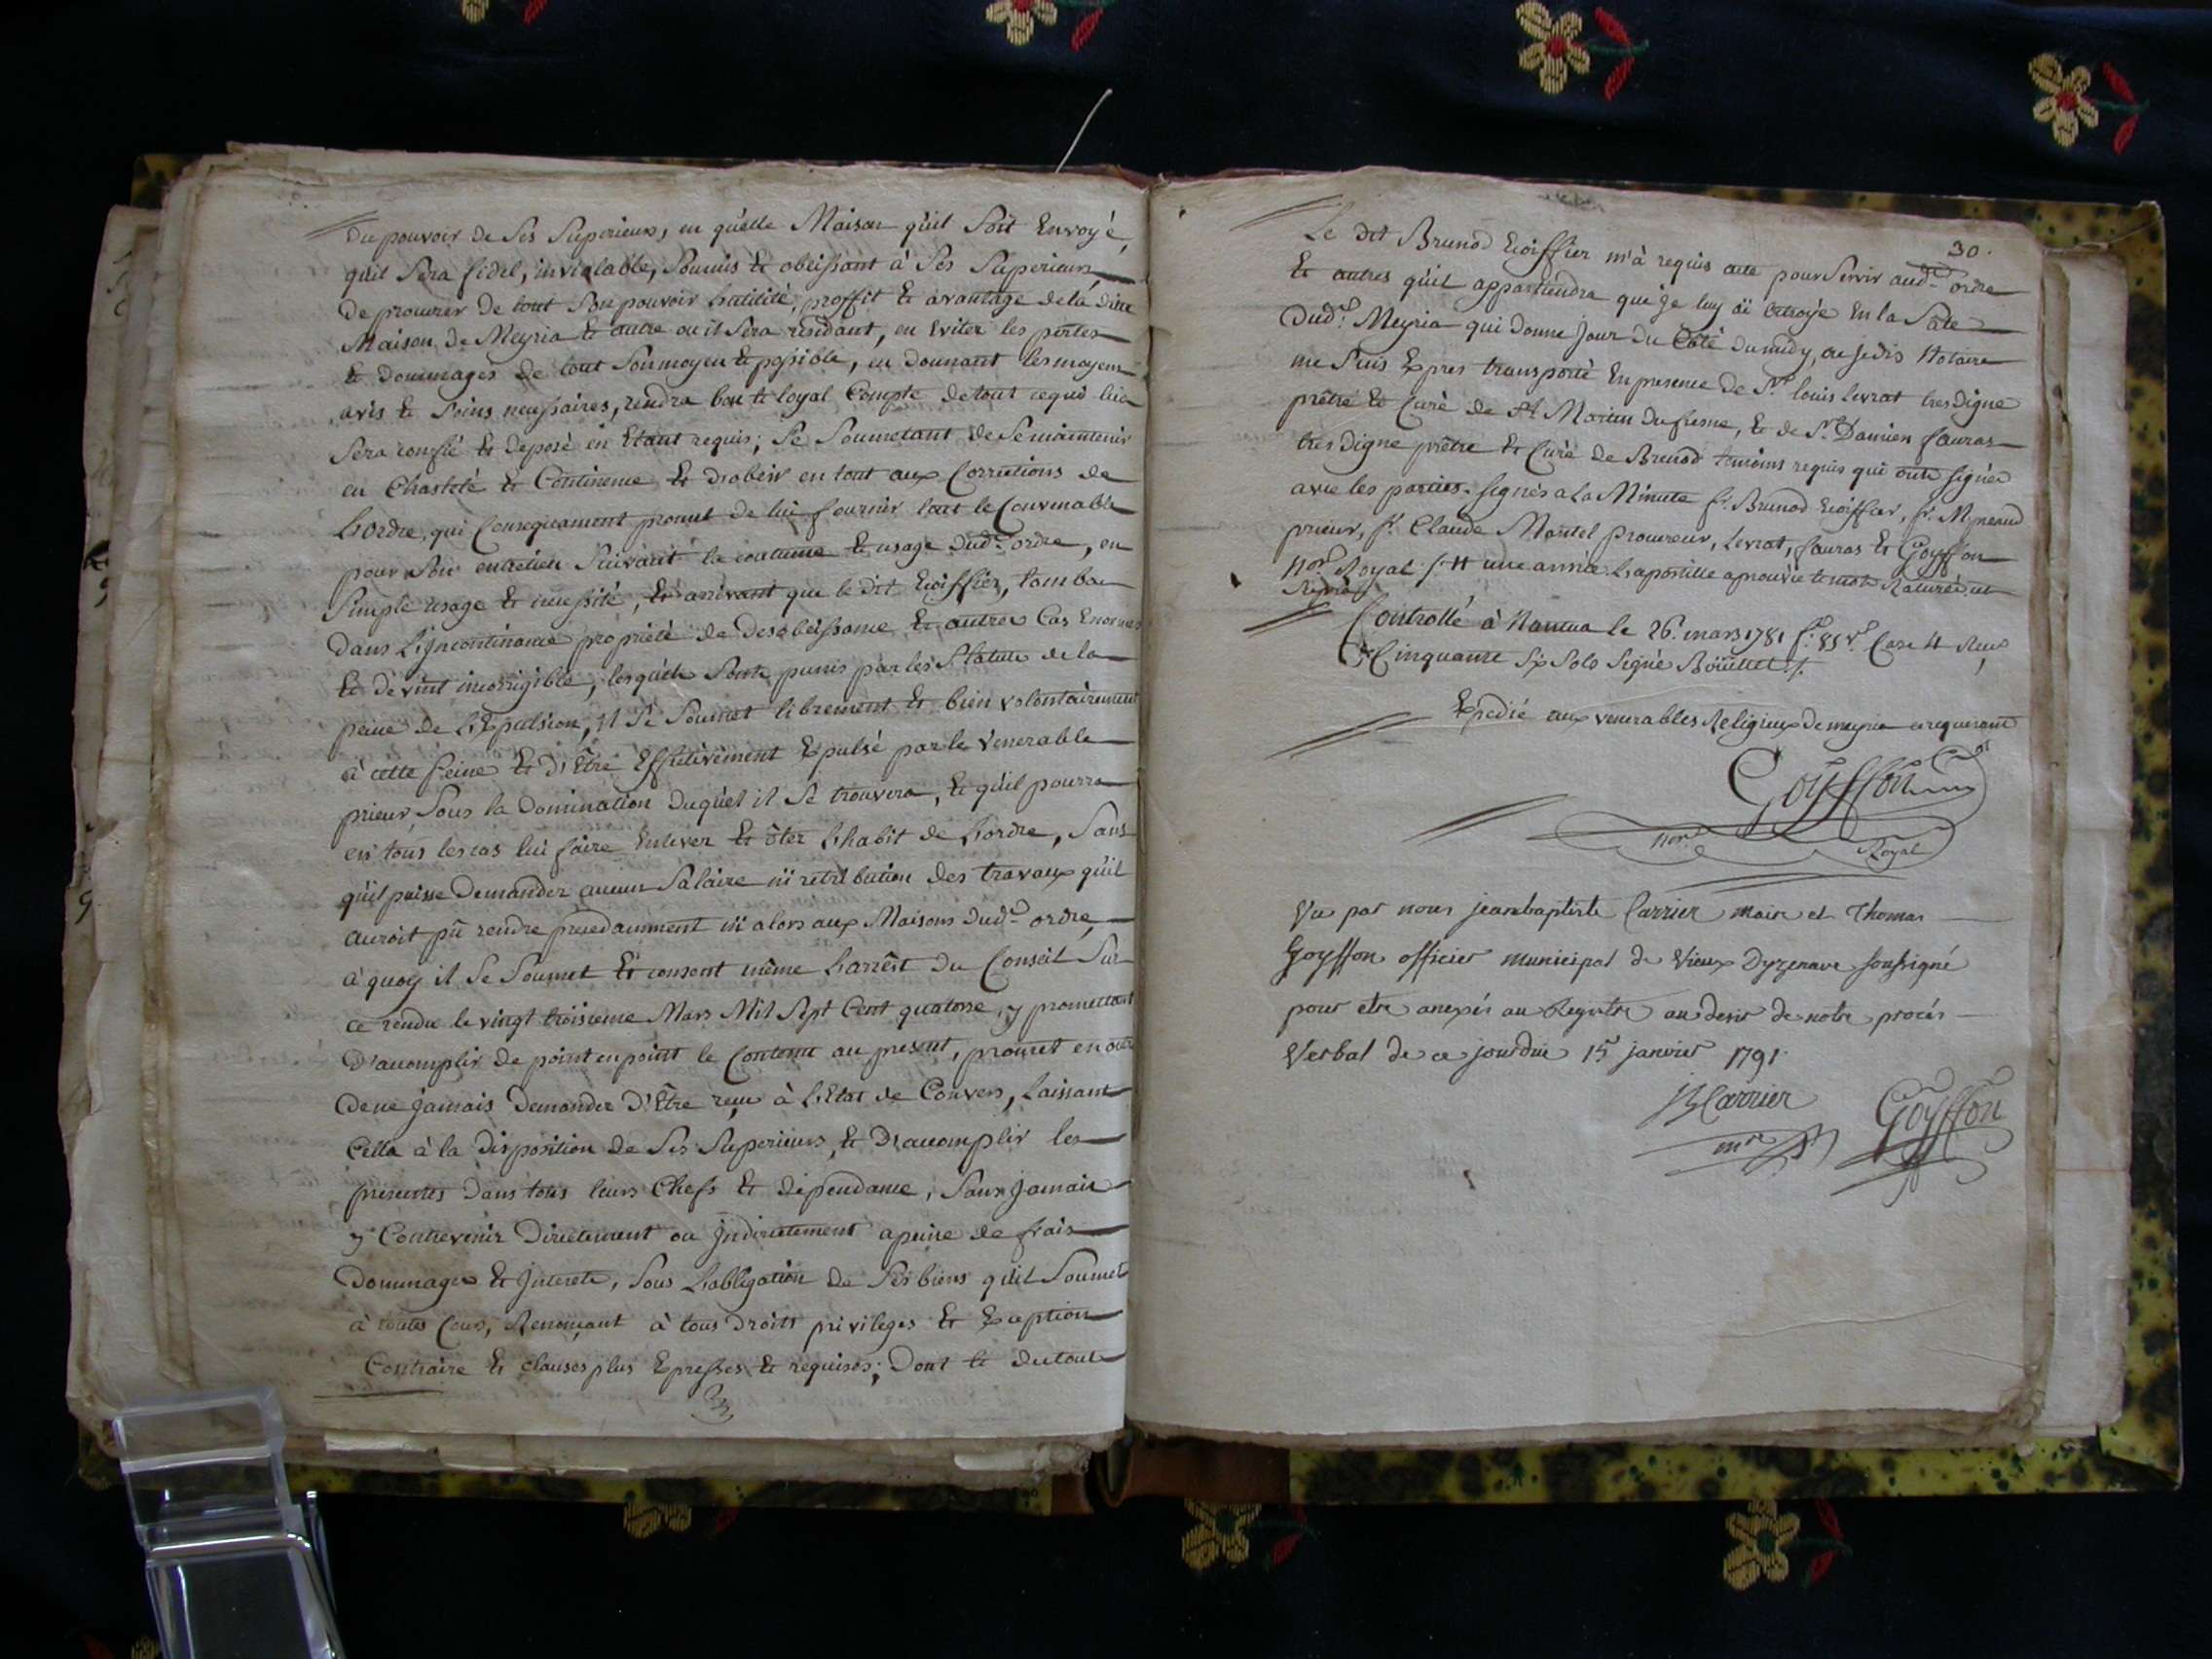 du pouvoir de Ses Superieurs, en quelle Maison qu'il Soit Envoyé,
qu'il Sera fidel, inviolable, Soumis Et obeissant à Ses Superieurs,
De procurer de tout Son pouvoir L'utilité, proffit Et avantage de la dite
Maison de Meyria Et autre ou il Sera residant, en Eviter les pertes
Et Dommages de tout Son moyen Et possible, en Donnant les moyens
avis Et Soins necessaires, rendra bon Et loyal Compte de tout ce qui lui
Sera confié Et deposé en Etant requis; Se Soumetant de Se maintenir
en Chasteté Et Continence Et d'obeir en tout aux Corrections de
L'ordre, qui Consequament promet de lui fournir tout le Convenable
pour Son entretien Suivant la coutume Et usage dud.t ordre, en
Simple usage Et necessité, Et arrivant que le dit Croissier, tomba
Dans L'Incontinance propriété de Desobeissance Et autres Cas Enormes
Et devint incorrigible, lesquels Sont punis par les Statuts de la
peine de L'Expulsion, Il Se Soumet librement Et bien volontairement
à cette peine Et d'Etre Effectivement Expulsé par le Venerable
prieur, Sous la Domination duquel il Se trouvera, Et qu'il pourra
en tous les cas lui faire Enlever Et ôter L'habit de L'ordre, Sans
qu'il puisse Demander aucun Salaire ni retribution des travaux qu'il
auroit pû rendre precedamment ni alors aux Maisons dud.t ordre,
à quoy il Se Soumet Et consent même L'arrêt du Conseil Sur
ce rendu le vingt troisieme Mars Mil Sept Cent quatorse, y promettant
D'acomplir de point en point le Contenu au present, promet en outre
De ne Jamais Demander D'Etre reçu à L'Etat de Convers, Laissant
Cella à la disposition de Ses Superieurs, Et D'acomplir les
presentes Dans tous leurs Chefs Et dependance, Sans Jamais
y Contrevenir Directement ou Indirectement a peine de frais
Dommages Et Interets, Sous L'obligation de Ses biens qu'il Soumet
à toutes Cours, Renonçant à tous Droits privileges Et Exception
Contraire Et clauses plus Expresses Et requises; Dont Et du tout
30.
Le dit Brunod m'à requis acte pour Servir aud.t ordre
Et autres qu'il appartiendra que Je luy ai Octroyé En la Sale
Dud.t Meyria qui Donne Jour du Côté du midy, ou Je dis Notaire
me Suis Expres transporté En presence de S.r louis Levrat tres Digne
prêtre Et Curé de S.t Martin du fresne, Et de S.r Damien fauras
tres Digne prêtre Et Curé de Brenod temoins requis qui ont signés
avec les parties. Signés a La Minute f.r Brunod f.r
prieur, f.r Claude Martel procureur, Levrat, fauras Et Goyffon
No.re Royal /. une année L'apostille aprouvée
Controllé à Nantua le 26. mars 1781 f.o 85 v.o Case 4 Reçu
Cinquante Six Sols Signé Boüillet ./.
Expedié aux venerables Religieux de meyria ce requerant
Goyffon
no.re Royal
Vu par nous jean baptiste Carrier maire et Thomas
Goyffon officier municipal de Vieux Dyzenave soussigné
pour etre anexés au Registre au desir de notre procés
Verbal de ce jourdui 15 janvier 1791.
JB Carrier
m.re
Goyffon